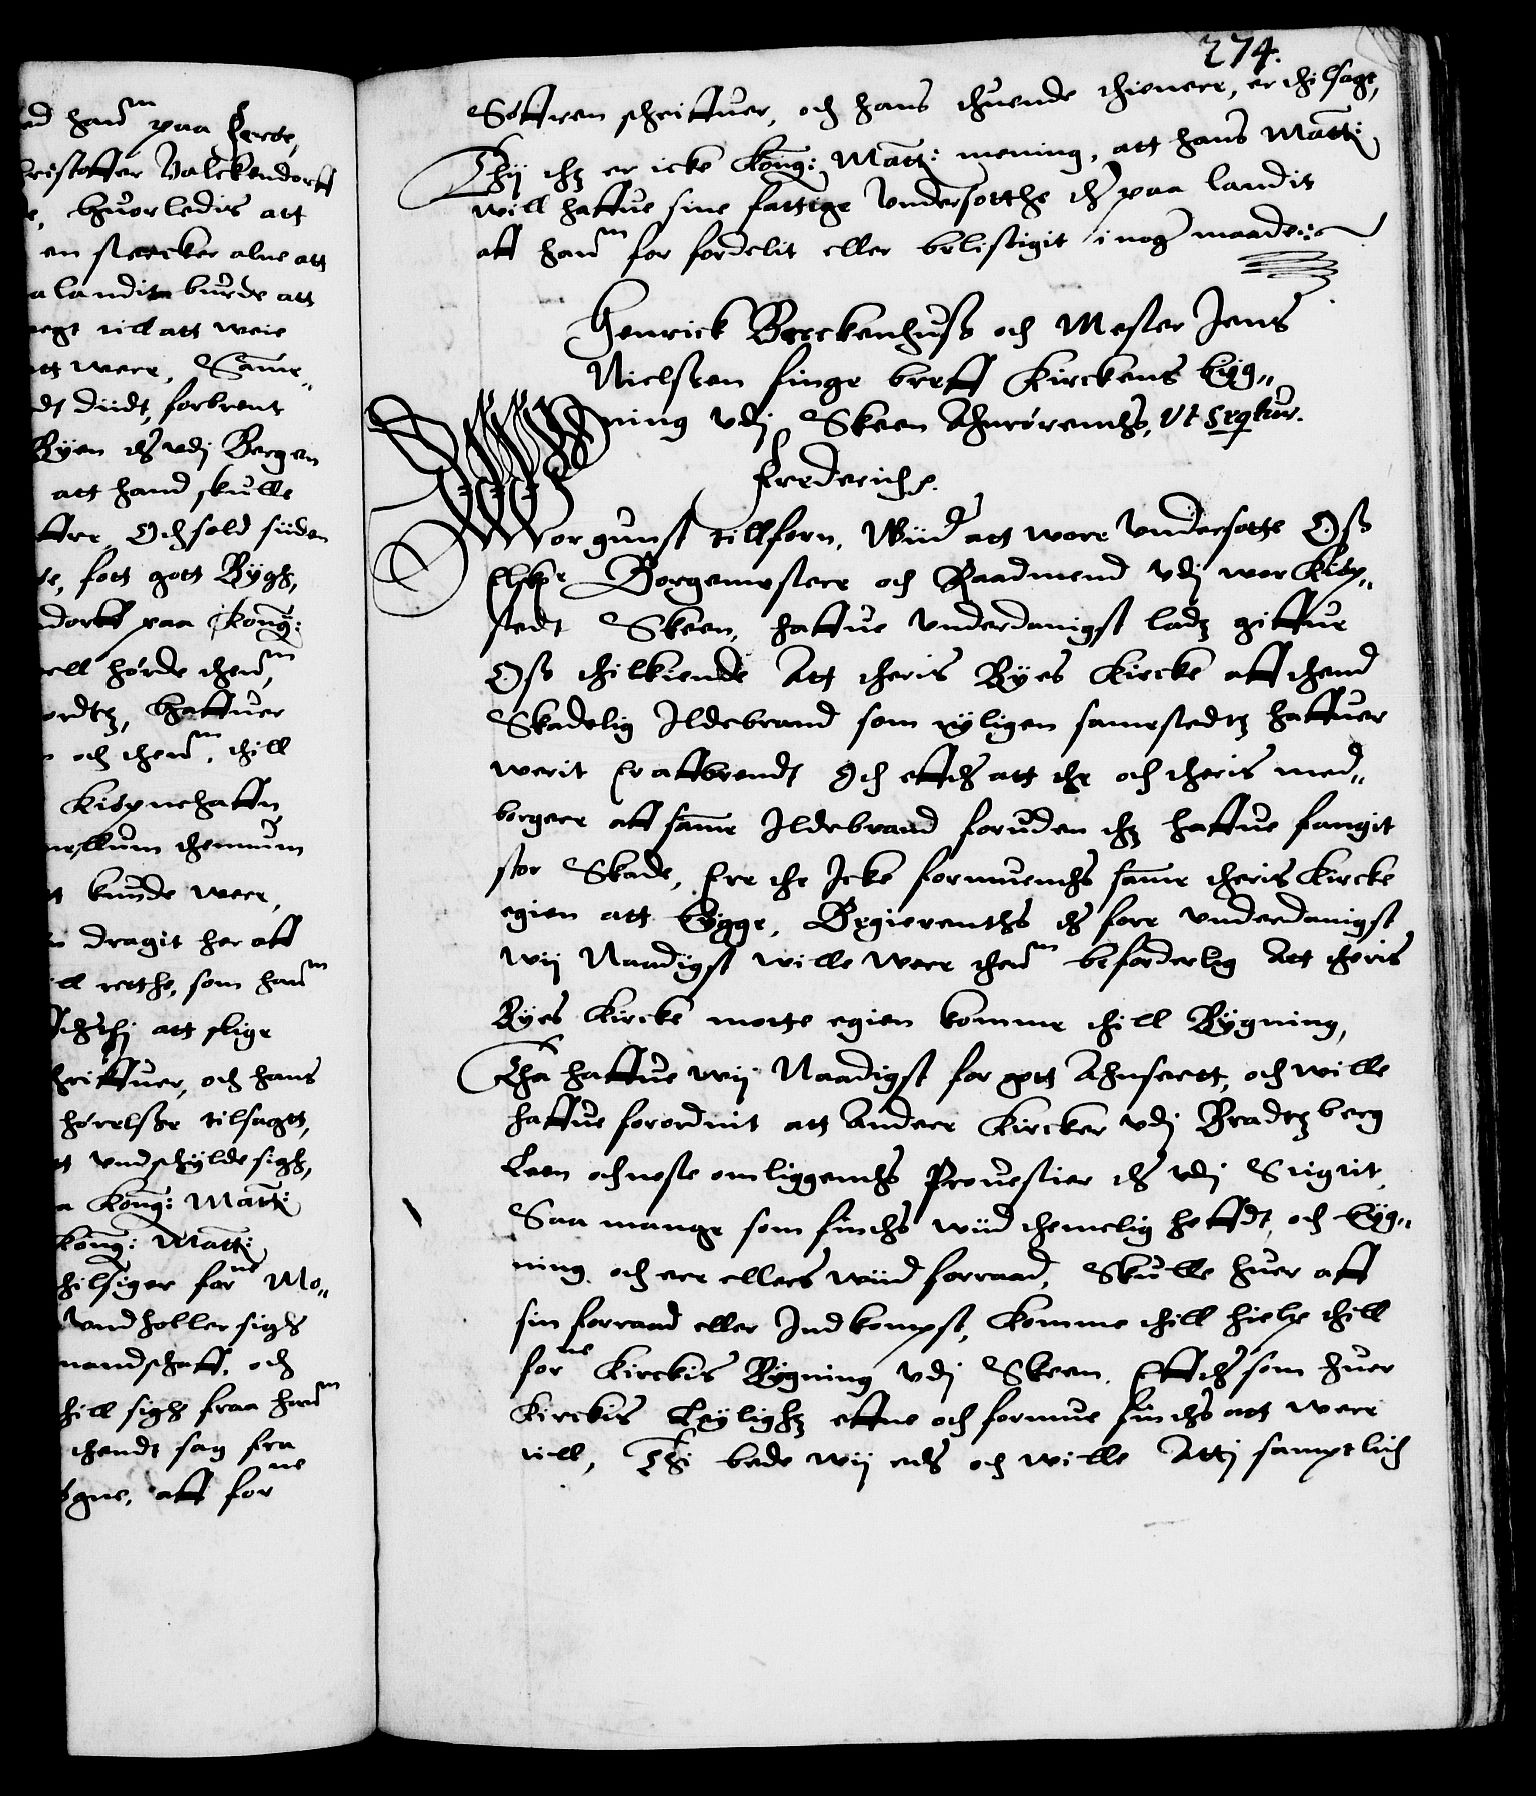 ad hanm paa Ferde,
ristoffer Valckendorff
e, Huorledis att
en stercker alne att
a landitt burde att
egt till att weie
tt were, Same„
dt diidt, forbrent
Byen ther vdj Bergen
att hand skulle
ffrre, Och sold siiden
te, fott gott Rygth,
dorff paa Kong:
ell hørde them,
ordtz, Haffuer
och them, thill
Kiøpnehaffn
mellum thennum
t kunde were,
dragit her aff
ll retthe, som hanm
att slige
hriffuer, och hans
hørelsse tilsagtt,
tt vndschylde sigh,
a Kong: Matt:
Kong: Matt:
thilsiger forne Mo„
Vndholler sigh
mandschaff, och
thill sigh fraa hanm
thendt sag fra
øgne, aff forne
274.
Søffren schriffuer, och hans thuende thienere, er thilsagt,
Thij thz er icke Kong: Matt: mening, att hans Matt:
will haffue sine fattige Vndersotthe ther paa landit
aff hanm for fordelit eller belistigit i noger maade
Henrick Brockenhuss och Mester Jens
Nielssen finge breff Kirckens Byg„
ning vdj Skeen Ahnrørendis, Vt sequtur.
Frederich.
Wor gunst tillforn, Wiid att wore Vndersotte Oss
Elskelige Borgemestere och Raadmend vdj wor Kiøp„
stedt Skeen, haffue vnderdanigst ladz giffue
Oss thilkiende Att theris Byes Kircke aff thend
Skadelig Ildebrand som nyligen samestedtz haffuer
werit Er affbrendt Och effther att the och theris med„
borgere aff same Ildebrand foruden thz haffue fangit
stor Skade, Ere the Icke formuendis same theris Kircke
egien att bygge, Begierendis ther fore vnderdanigst
wij Naadigst wille were them beforderlig Att theris
Byes Kircke motte egien komme thill Bygning,
Tha haffue wij Naadigst for gott Ahnseett, och wille
haffue forordnit att Andere Kircker vdj Bradtzberg
Leen och neste omliggendis Prouestier ther vdj Stigtit,
Saa mange som findis wiid themelig hefft, och byg„
ning och ere ellers wiid forraad, Skulle huer aff
sin forraad eller Indkompst, Komme thill hielp thill
forne Kirckis Bygning vdj Skeen, Effther som huer
Kirckis Leylighz effne och formue findis att were
till, Thi bede wij eder och wille Attj samptlich